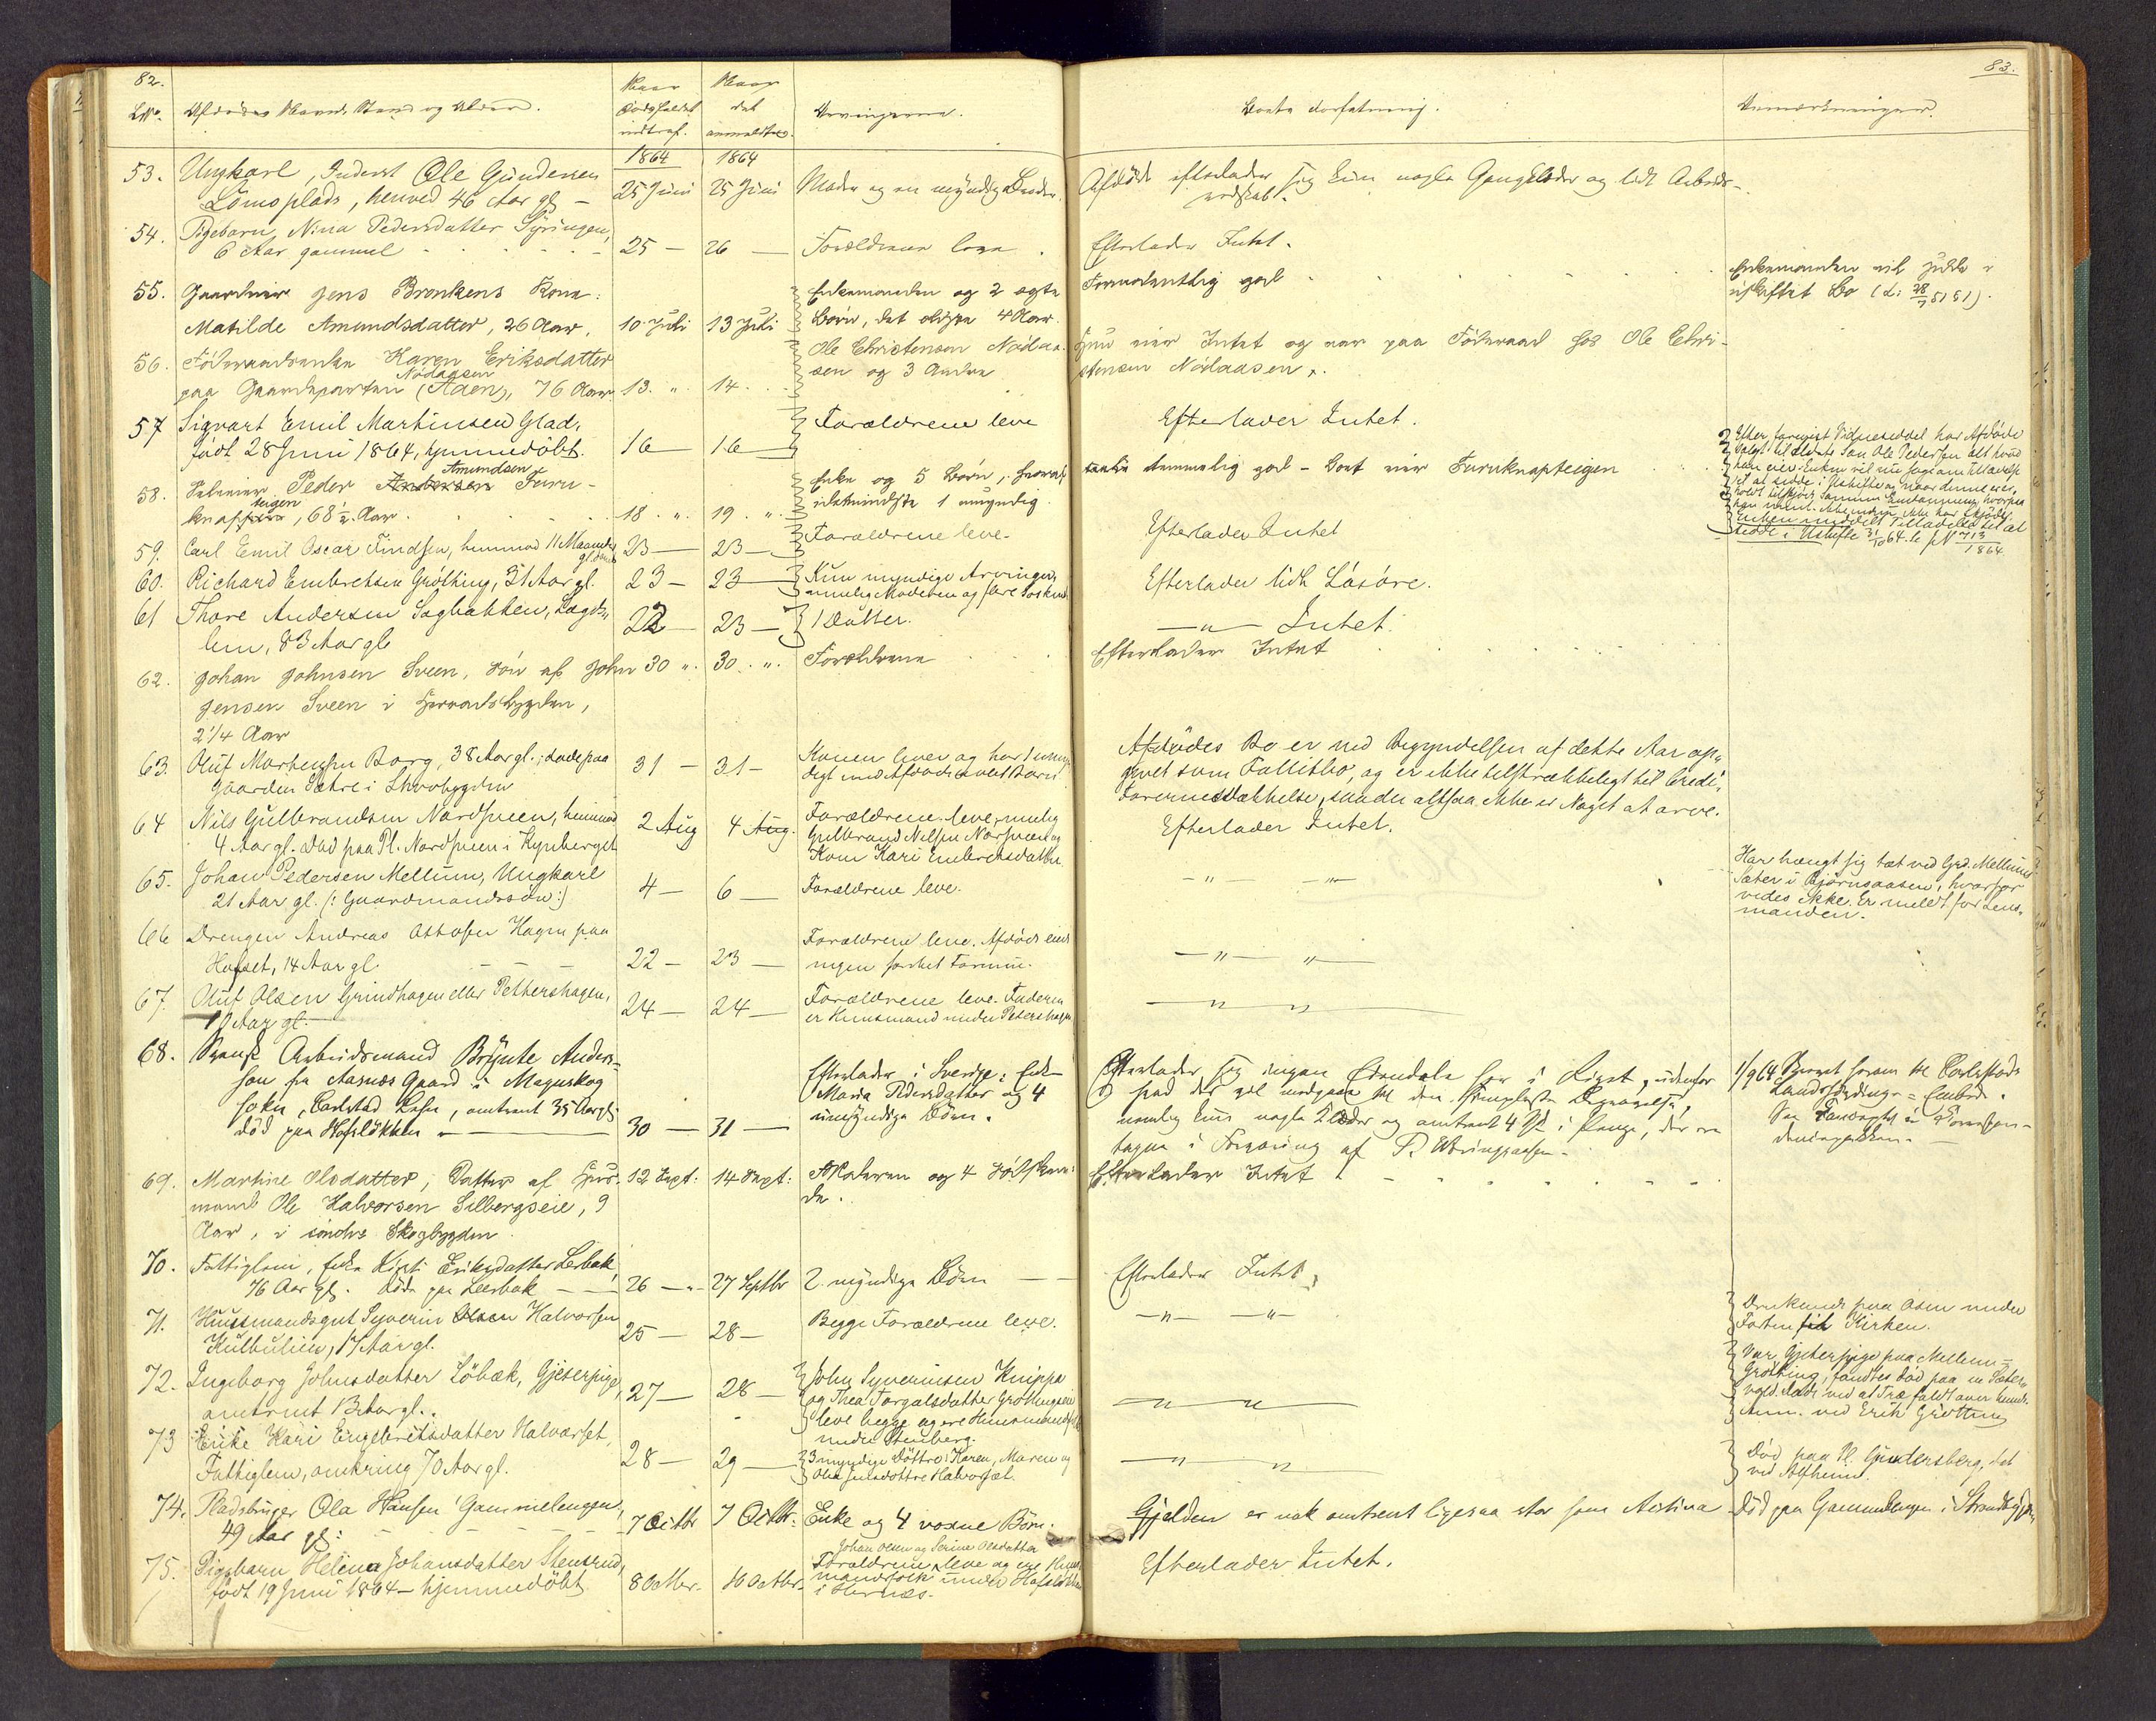 82.
LNo.
Afdødes Navn, Stand og Alder.
Naar
Dødsfaldet
indtraf.
Naar
det
anmeldtes.
Arvingerne.
Boets Forfatning.
Anmærkninger.
83.
1864
1864
53. Ungkarl, Inderst Ole Gundersen
Lömoplads, henved 46 Aar gl –
25 Juni
25 Juni
Moder og en myndig Broder.
Afdøde efterlader sig kun nogle Gangklæder og lidt Arbeids-
redskab.
54. Pigebarn, Nina Pedersdatter Syringen,
6 Aar gammel
25 —
26 —
Forældrene leve.
Efterlader Intet.
55. Gaardeier Jens Bronkens Kone:
Matilde Amundsdatter, 26 Aar.
10. Juli
13 Juli
Enkemanden og 2 ægte
Børn, det ældste 4 Aar.
Formodentlig god
Enkemanden vil sidde i
uskiftet Bo
56. Föderaadsenke Karen Eriksdatter
paa Gaardeparten (Aaen), 76 Aar
Nödaasen
13. "
14.
Ole Christensen Nödaa-
sen og 3 Andre
Hun eier Intet og var paa Föderaad hos Ole Chri-
stensen Nödaasen.
57 Sigvart Emil Martinsen Glad,
født 28 Juni 1864, hjemmedöbt.
16 —
16 —
Forældrene leve
Efterlader Intet.
58. Selveier Peder Andersen Furu-
Amundsen
knapteigen, 68 1/2 Aar.
18. "
19. "
Enke og 5 Børn, hvoraf
idetmindste 1 umyndig.
temmelig god – Boet eier Furuknapteigen
Efter foreviist Vidneseddel har Afdøde
solgt til ældste Søn Ole Pedersen alt hvad
sidde i Uskifte 31/10 64. Se No 713/1864
59. Carl Emil Oscar Findsen, henimod 11 Maaneder
gl.
23 —
23 —
Forældrene leve.
Efterlader Intet
60. Richard Embretsen Gröthing, 31 Aar gl.
23 —
23 —
Kun myndige Arvinger,
nemlig Moderen og flere Søskend
Efterlader lidt Lösöre.
61 Thore Andersen Sagbakken, Lægds-
lem, 83 Aar gl.
22 —
23 —
1 Datter.
— " — Intet.
62. Johan Johnsen Sveen, Søn af John
Jensen Sveen i Hernæsbygden,
2 1/4 Aar
30 ".
30. ".
Forældrene
Efterlader Intet
63. Oluf Mortensen Borg, 38 Aar gl.; døde paa
Gaarden Sætre i Strandbygden
31 —
31 —
Konen lever og har 1 umyn-
digt med Afdøde avlet Barn
Afdødes Bo er ved Begyndelsen af dette Aar op-
givet som Fallitbo, og er ikke tilstrækkeligt til Credi-
torernes Dækkelse, saa der altsaa ikke er Noget at arve.
64 Nils Gulbrandsen Nordsveen, henimod
4 Aar gl. Død paa Pl. Nordsveen i Kynberget
2 Aug
4 Aug.
Forældrene leve, nemlig
Gulbrand Nilsen Norsveen og
Kone Kari Embretsdatter
Efterlader Intet.
65. Johan Pedersen Mellum, Ungkarl
21 Aar gl. (: Gaardmandssøn:)
4 —
6 —
Forældrene leve.
– " – – " –
Har hængt sig tæt ved Grd. Mellums
Sæter i Björnsaasen, hvorfor
vides ikke. Er meldt for Lens-
manden.
66 Drengen Andreas Ottosen Hagen paa
Hofset, 14 Aar gl.
22 —
23 —
Forældrene leve. Afdøde eied
ingen særskilt Formue.
— " — " —
67. Oluf Olsen Grindhagen eller Pettershagen,
10 Aar gl.
24 —
24 —
Forældrene leve. Faderen
er Huusmand under Petershagen
— " — " —
68. Svensk Arbeidsmand Brynte Anders-
son fra Aasnæs Gaard i Magnuskog
Sokn, Carlstad Lehn, omtrent 35 Aar gl;
død paa Hofslökken
30 —
31 —
Efterlader i Sverige: Enke
Maria Pedersdatter og 4
umyndige Børn.
Efterlader sig ingen Eiendele her i Riget, udenfor
hvad der vil medgaae til den simpleste Begravelse,
nemlig kun nogle Klæder og omtrent 4 Spd i Penge, der ere
tagne i Forvaring af
1/9 64 Brevet herom til Carlstads
Landshövdinge-Embede.
69. Martine Olsdatter, Datter af Huus-
mand Ole Halvorsen Silbergseie, 9
Aar, i søndre Skogbygden
12 Sept:
14 Sept:
Moderen og 4 Sødskende.
Efterlader Intet
70. Fattiglem, Enke Kirsti Eriksdatter Lerbæk,
76 Aar gl. død paa Leerbæk
26 — " –
27 Septbr
2 myndige Børn — —
Efterlader Intet,
71. Huusmandsgut Syverin Olsen Halvorsen
Kulbulien, 17 Aar gl.
25 —
28 —
Begge Forældrene leve.
— " — — " —
Druknede paa Osen under
Farten til Kirken.
72. Ingeborg Johnsdatter Löbæk, Gjeterpige,
omtrent 13 Aar gl..
27 —
28 —
John Syverinsen Knippa
og Thea Torgalsdatter Gröthingseie
leve begge og ere Huusmandsfolk
under Stenberg.
— " — " —
Var Gjeterpige paa Mellem-
Gröthing, fandtes død paa en Sæter-
vold. Døde ved at Træ faldt over hende.
Anm. ved Erik Gröthing
73 Enke Kari Engebretsdatter Halvorset,
Fattiglem, omkring 70 Aar gl.
28 —
29 —
3 myndige Döttre: Karen, Maren og
Olea Jensdöttre Halvorset.
— " — " —
Død paa Pl. Gundersberg, tæt
ved Alfheim.
74. Pladsbruger Ola Hansen Gammelengen,
49 Aar gl:
7 Octbr
7 Octbr:
Enke og 4 voxne Børn.
Gjelden er nok omtrent ligesaa stor som Activa
Død paa Gammelengen i Strandbygden
75. Pigebarn Helena Johansdatter Stensrud,
født 19 Juni 1864 – hjemmedöbt
8 Octbr.
10 Octbr.
Johan Olsen og Serine Olsdatter
Forældrene leve og ere Huus-
mandsfolk under Hofslökken
i Hernæs.
Efterlader Intet.